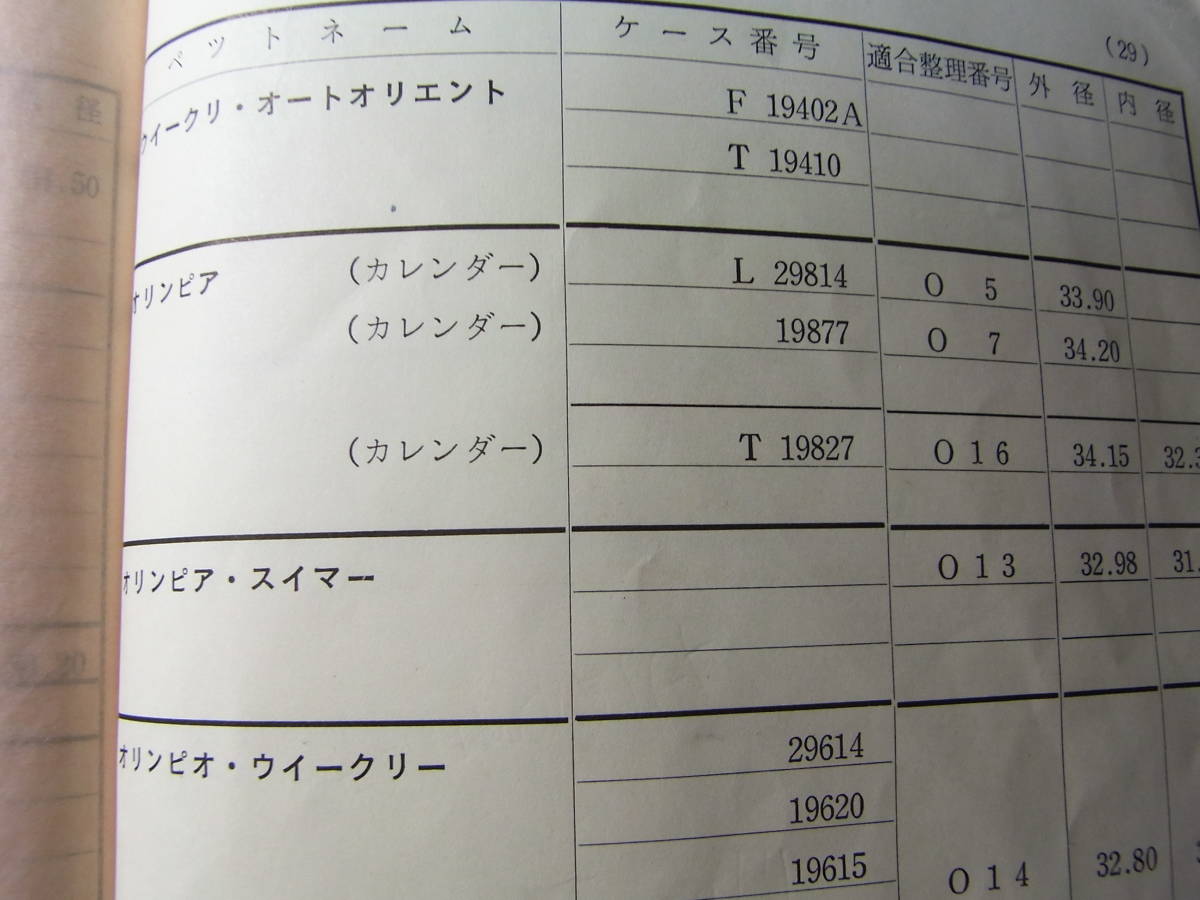 (29)
ペットネーム ケース番号 適合整理番号 外径 内径
ウイークリ・オートオリエント F 19402A
T 19410
オリンピア (カレンダー) L 29814 O 5 33.90
(カレンダー) 19877 O 7 34.20
(カレンダー) T 19827 O 16 34.15 32.3
オリンピア・スイマー O 13 32.98 31.
オリンピオ・ウイークリー 29614
19620
19615 O 14 32.80
径
.50
.20